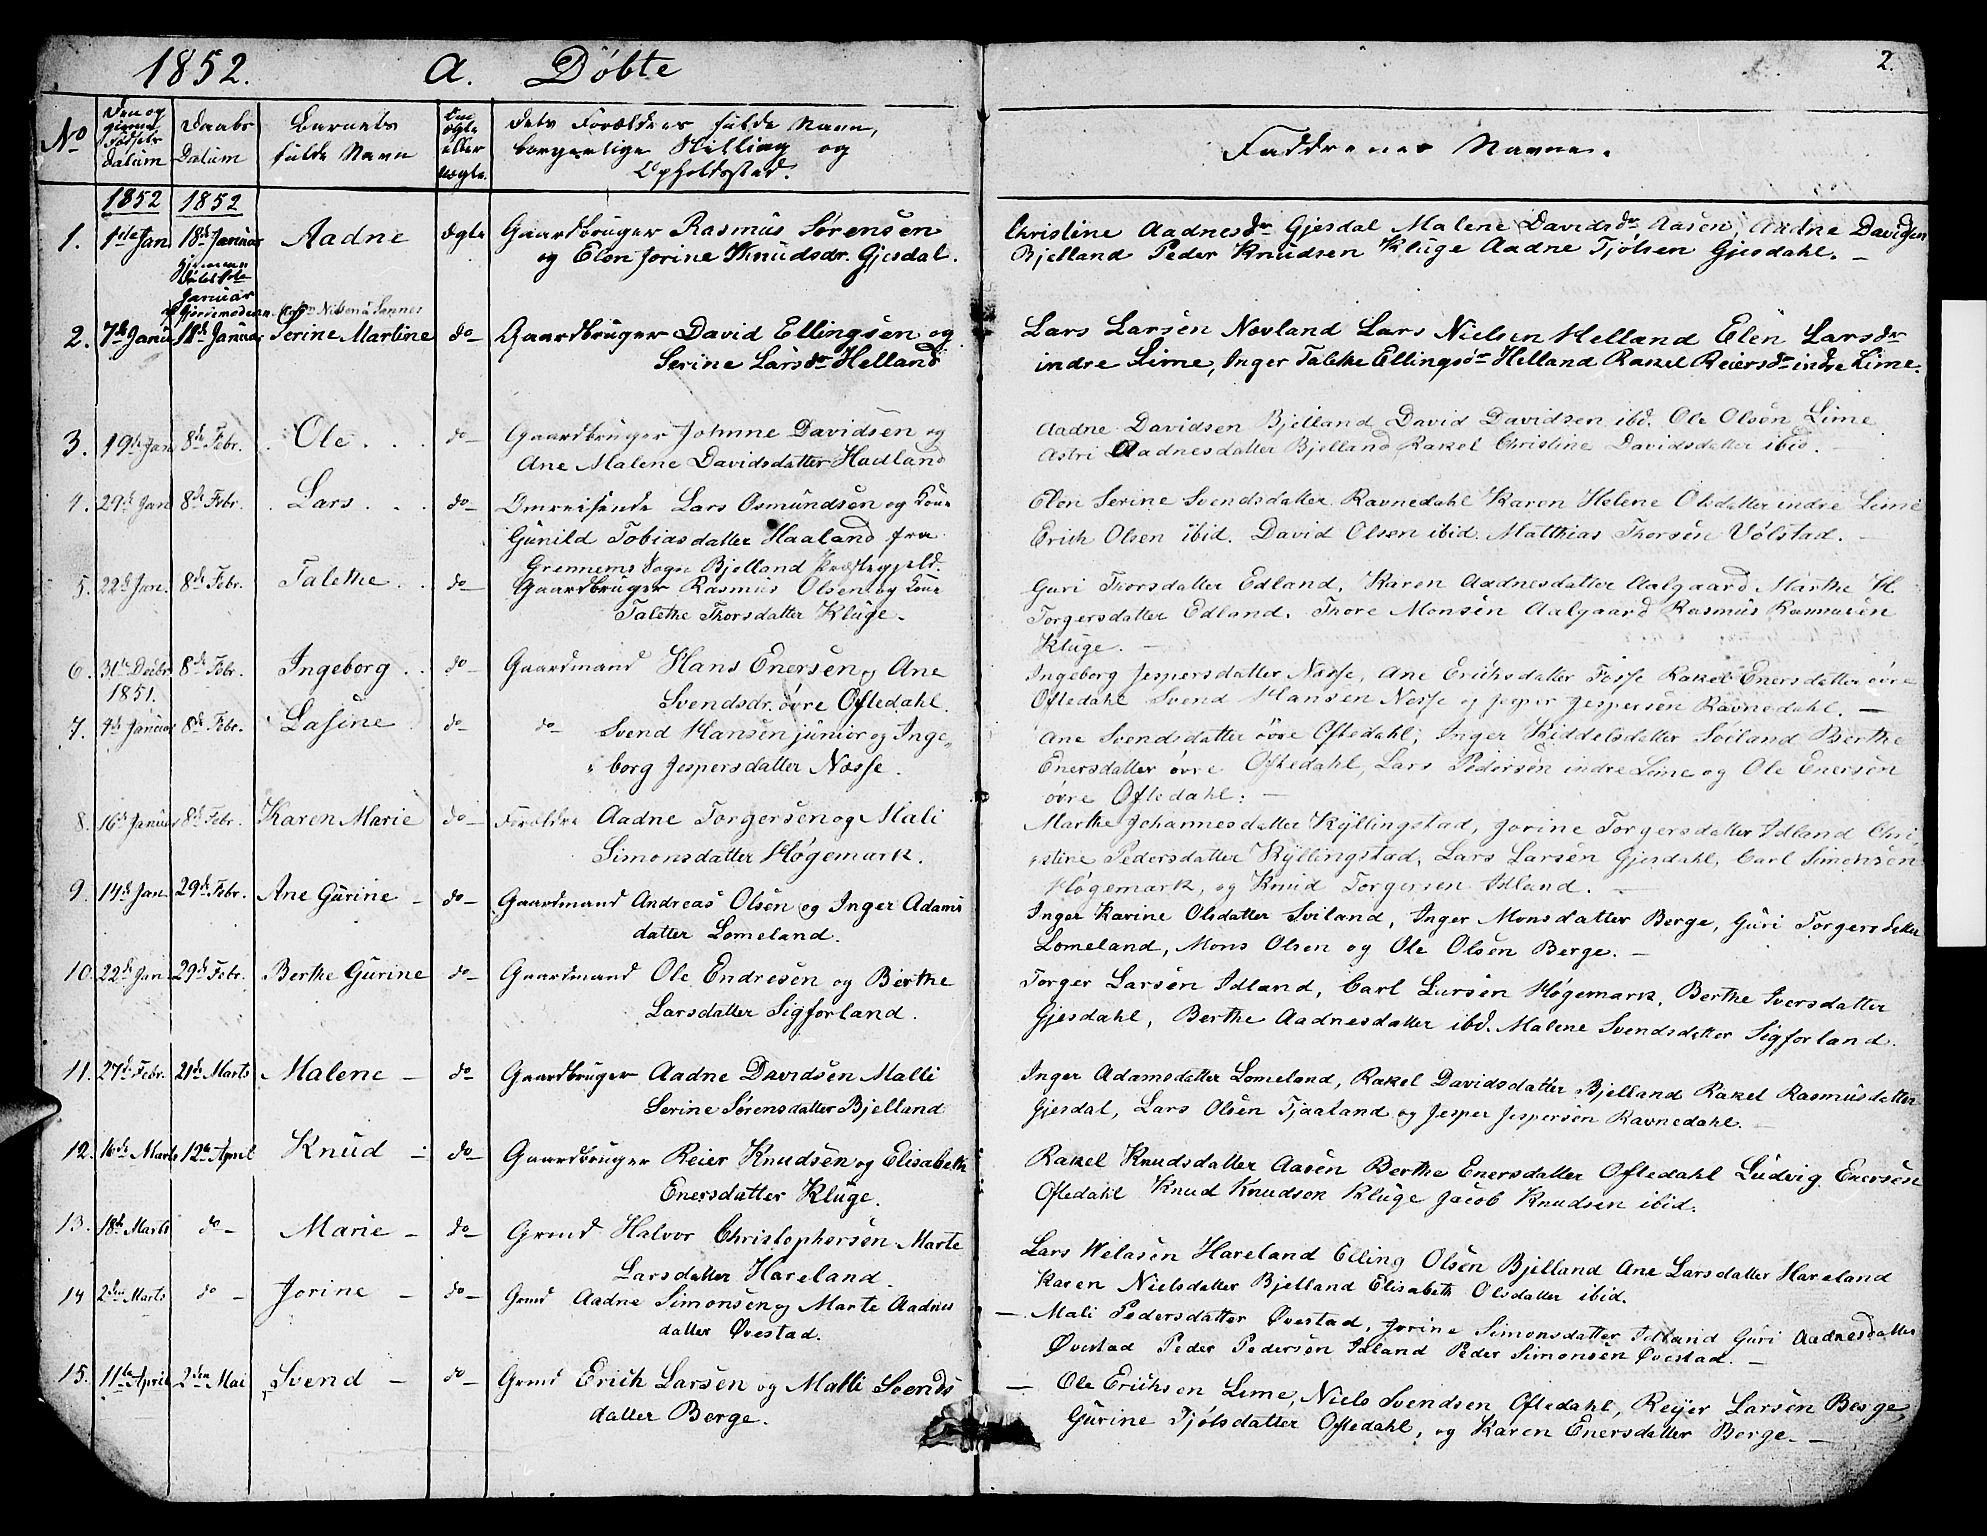 1852. A. Döbte
2.
No
Den opgivne Fødsels Datum
Daabs Datum
Barnets fulde Navn
Om ægte eller uægte.
Dets Forældres fulde Navn, borgerlige Stilling og Opholdsstad.
Faddrenes Navne.
1852 1852
1. 1ste Jan 18de Januar Aadne ægte Gaardbruger Rasmus Sørensen
og Elen Jorine Knudsdr. Gjesdal.
Christine Aadnesdr Gjesdal Malene Davidsdr Aasen, Aadne Davidsen
Bjelland Peder Knudsen Kluge Aadne Tjølsen Gjesdahl. —
Januar
2. 7de Januar 18de Januar Serine Martine do Gaardbruger David Ellingsen og
Serine Larsdr Helland
Lars Larsen Novland Lars Nielsen Helland Elen Larsdr
indre Lime, Inger Talethe Ellingsdr Helland Rakel Reiersdr indre Lime.
3. 19de Jan 8de Febr. Ole do Gaardbruger Johnne Davidsen og
Ane Malene Davidsdatter Hadland
Aadne Davidsen Bjelland David Davidsen ibd. Ole Olsen Lime
Astri Aadnesdatter Bjelland Rakel Christine Davidsdatter ibid. —
4. 29de Jan 8de Febr. Lars do Omreisende Lars Osmundsen og Kone
Gunild Tobiasdatter Haaland fra
Grennems Sogn Bjelland Præstegjeld.
Elen Serine Svendsdatter Ravnedahl Karen Helene Olsdatter indre Lime
Erich Olsen ibid. David Olsen ibid. Matthias Thorsen Vølstad. —
5. 22de Jan. 8de Febr. Talethe do Gaardbruger Rasmus Olsen og Kone
Talethe Thorsdatter Kluge.
Guri Thorsdatter Edland, Karen Aadnesdatter Aalgaard Marthe H.
Torgersdatter Edland. Thore Monsen Aalgaard Rasmus Rasmusen
Kluge. —
6. 31te Decbr 1851. 8de Febr. Ingeborg do Gaardmand Hans Enersen og Ane
Svendsdr. øvre Oftedahl.
Ingeborg Jespersdatter Nesse, Ane Erichsdatter Fosse Rakel Enersdatter øvre
Oftedahl Svend Hansen Nesse og Jesper Jespersen Ravnedahl. —
7. 4de Januar 8de Febr. Lasine do do Svend Hansen junior og Inge-
borg Jespersdatter Nesse.
Ane Svendsdatter øvre Oftedahl, Inger Kiddelsdatter Søiland Berthe
Enersdatter øvre Oftedahl, Lars Pedersen indre Lime og Ole Enersen
øvre Oftedahl. —
8. 16de Januar 8de Febr. Karen Marie do Forældre Aadne Torgersen og Mali
Simonsdatter Høgemark.
Marthe Johannesdatter Kyllingstad, Jorine Torgersdatter Idland Chri-
stine Pedersdatter Kyllingstad, Lars Larsen Gjesdahl, Carl Simonsen
Høgemark, og Knud Torgersen Idland. —
9. 14de Jan 29de Febr. Ane Gurine do Gaardmand Andreas Olsen og Inger Adams
datter Lomeland.
Inger Karine Olsdatter Sviland, Inger Monsdatter Berge, Guri Torgersdatter
Lomeland, Mons Olsen og Ole Olsen Berge. —
10. 22de Jan 29de Febr. Berthe Gurine do Gaardmand Ole Endresen og Berthe
Larsdatter Sigforland.
Torger Larsen Idland, Carl Larsen Høgemark, Berthe Iversdatter
Gjesdahl, Berthe Aadnesdatter ibd. Malene Svendsdatter Sigforland.
11. 27de Febr. 21de Marts Malene do Gaardbruger Aadne Davidsen Malli
Serine Sørensdatter Bjelland
Inger Adamsdatter Lomeland, Rakel Davidsdatter Bjelland Rakel Rasmusdatter
Gjesdal, Lars Olsen Tjaaland og Jesper Jespersen Ravnedahl. —
12. 16de Marts 12te April Knud do Gaardbruger Reier Knudsen og Elisabeth
Enersdatter Kluge.
Rakel Knudsdatter Aasen Berthe Enersdatter Oftedahl Ludvig Enersen
Oftedahl Knud Knudsen Kluge Jacob Knudsen ibid.
13. 18de Marts do Marie do Grmd Halvor Christophersen Marte
Larsdatter Haveland.
Lars Welasen Haveland Elling Olsen Bjelland Ane Larsdatter Haveland
Karen Nielsdatter Bjelland Elisabeth Olsdatter ibid.
14 2den Marts do Jorine do Grmd Aadne Simonsen og Marte Aadnes
datter Øvestad.
— Mali Pedersdatter Øvestad, Jorine Simonsdatter Idland Guri Aadnesdatter
Øvestad Peder Pedersen Idland Peder Simonsen Øvestad. —
15. 11te April 2den Mai Svend do Grmd Erich Larsen og Malli Svends
datter Berge.
— Ole Erichsen Lime, Niels Svendsen Oftedahl, Reyer Larsen Berge,
Gurine Tjølsdatter Oftedahl, og Karen Enersdatter Berge. —